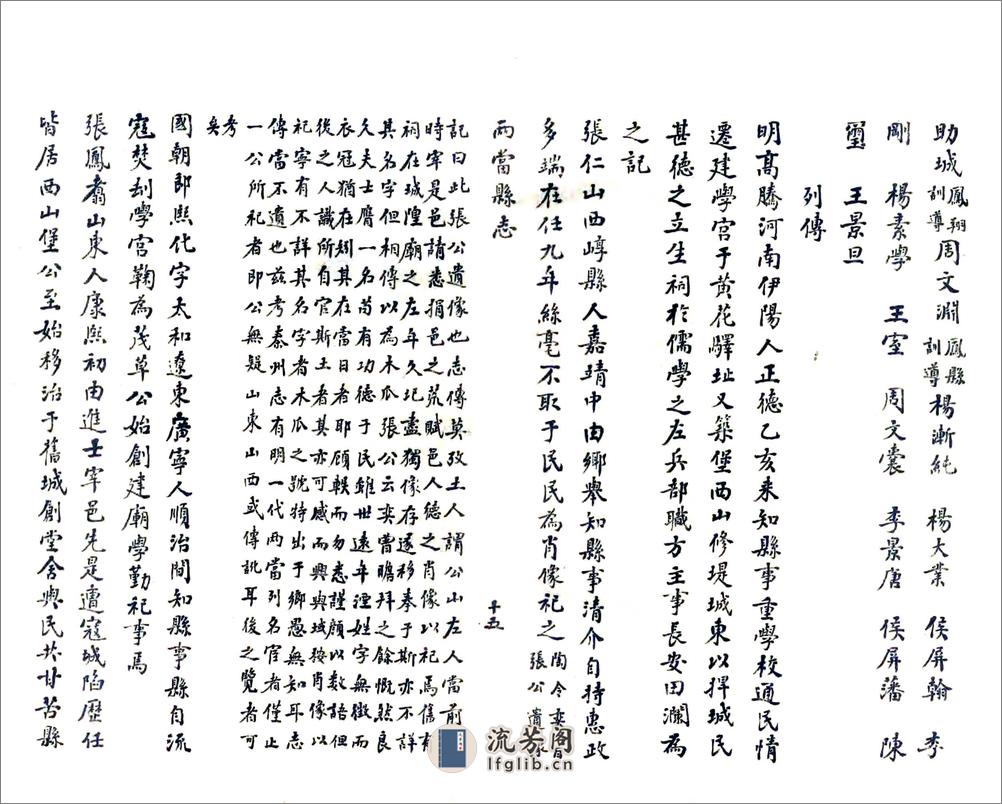 助城鳳翔訓導周文淵鳳縣訓導楊漸純 楊大業 侯屏翰 李
剛 楊素學 王室 周文囊 李景唐 侯屏藩 陳
璽 王景旦
列傳
明高騰河南伊陽人正德乙亥来知縣事重學校通民情
遷建學宮于黄花驛址又築堡西山修堤城東以捍城民
甚德之立生祠於儒學之左兵部職方主事長安田瀾為
之記
張仁山西崞縣人嘉靖中由鄉舉知縣事清介自持惠政
多端在任九年絲毫不取于民民為肖像祀之陶令奕曾張公遺像
兩當縣志
十五
記曰此張公遺像也志傳莫攷土人謂公山左人當前
時宰是邑請悉捐邑之荒賦邑人德之肖像以祀焉舊有
祠在城隍廟之左年久圮盡獨像存遂移奉于斯亦不詳
其名字但相傳以為木瓜張公云奕曾瞻拜之餘慨然良
久夫士膺一名苟有功德于民雖世遠年湮姓字無徵而
衣冠猶在矧其在當日者耶顧軼而勿悉謹顔以数語但
後之人識所自官斯土者其亦可感而興與域按肖像以
祀寧有不詳其名字者木瓜之號特出于鄉愚無知耳志
傳當不遺也兹考秦州志有明一代两當列名宦者僅止
一公所祀者即公無疑山東山西或傳訛耳後之覽者可
考矣
國朝郎熙化字太和遼東廣寧人順治間知縣事縣自流
寇焚刦學宮鞠為茂草公始創建廟學勤祀事焉
張鳳翥山東人康熙初由進士宰邑先是遭寇城陷歷任
皆居西山堡公至始移治于舊城創堂舍與民共甘苦縣
流芳阁
lfglib.cn